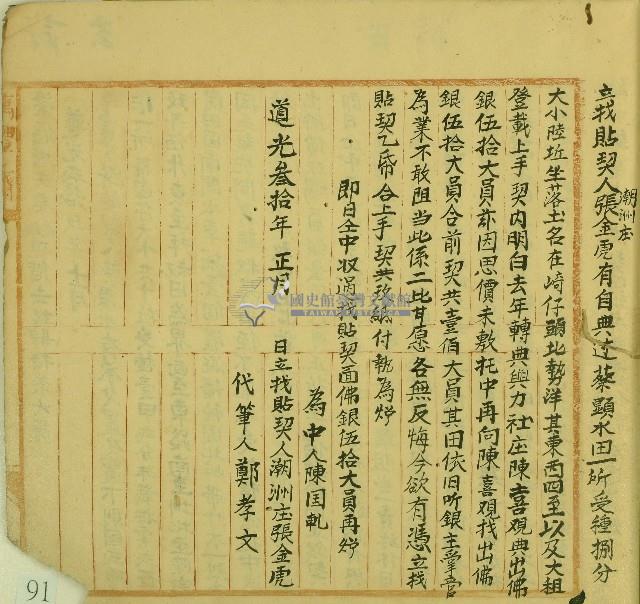 立找貼契人張金虎有自典過蔡顯水田一所受種捌分
潮洲庄
大小陸坵坐落土名在崎仔頭北勢洋其東西四至以及大租
登載上手契内明白去年轉典與力社庄陳喜观典出佛
銀伍拾大員亦因思價未敷托中再向陳喜观找出佛
銀伍拾大員合前契共壹佰大員其田依旧听銀主掌管
為業不敢阻当此係二比甘愿各無反悔今欲有憑立找
貼契乙帋合上手契共 繳付執為炤
即日仝中收過找貼契面佛銀伍拾大員再炤
為中人陳国軋
道光叁拾年 正月 日立找貼契人潮洲庄張金虎
代筆人鄭孝文
國史館臺灣文獻館
TAIWAN HISTORICA
91